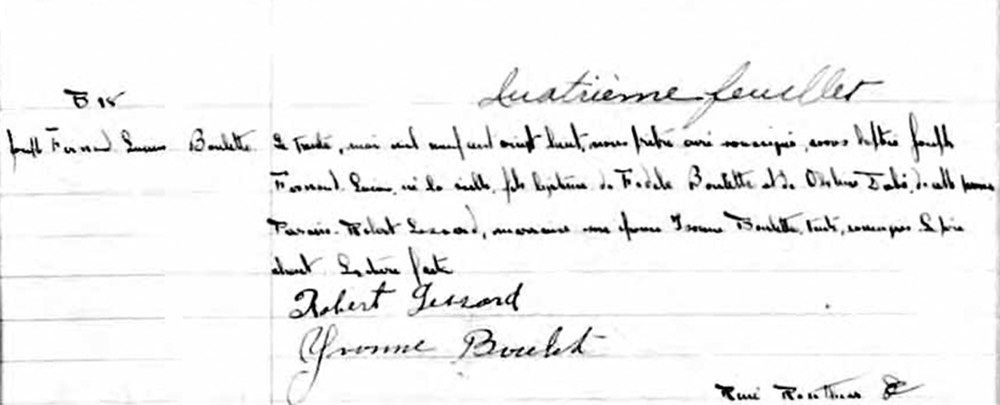 Quatrième feuillet
B 18
Joseph Fernand Lucien Boulette
Le trente, mai mil neuf cent vingt huit, nous prêtre curé soussigné, avons baptisé Joseph
Fernand Lucien, né la veille, fils légitime de Fidèle Boulette et de
Parrain Robert Lessard, marraine son épouse Yvonne Boulette, soussignés. Le père
absent. Lecture faite
Robert Lessard
Yvonne Boulet
René